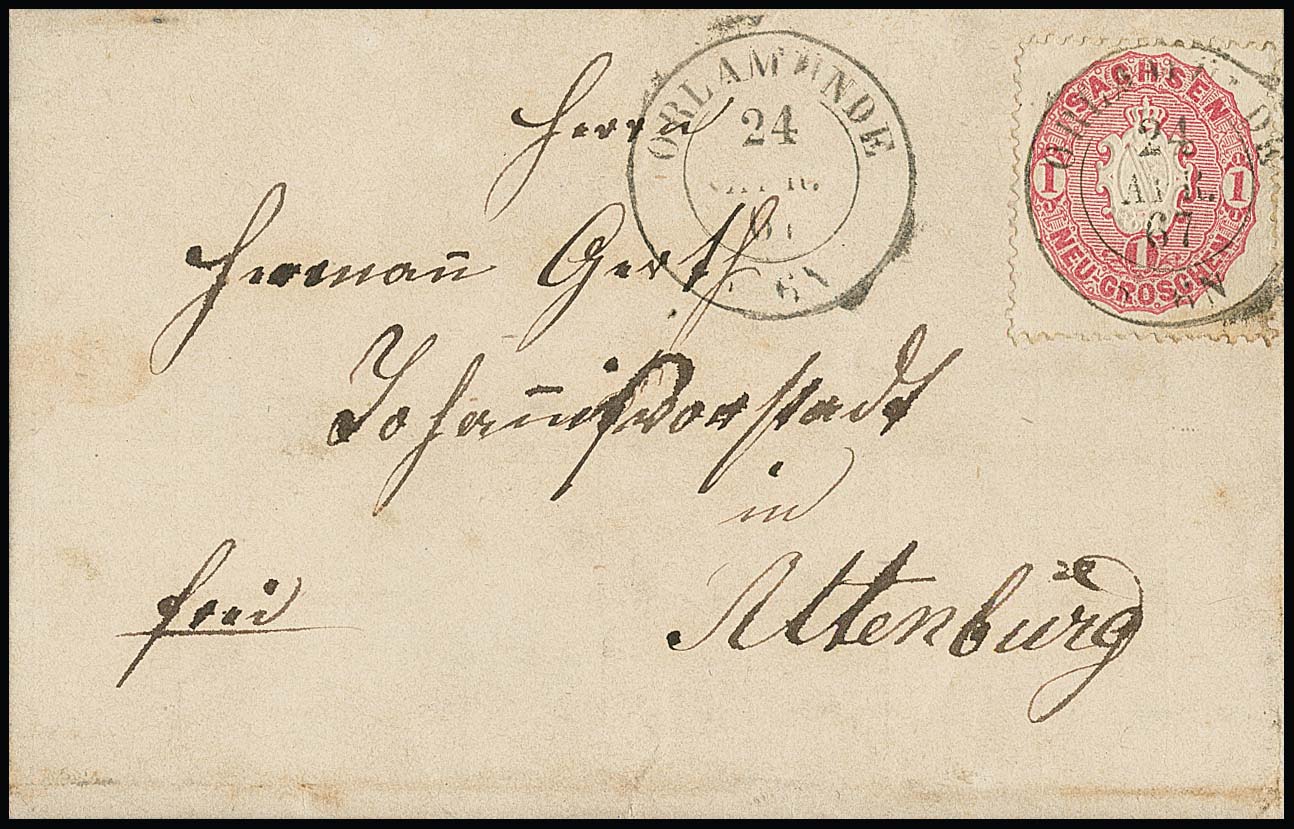 Herrn
Hermañ Gerth
Johañisvorstadt
in
Altenburg
frei
ORLAMÜNDE
24
APR.
67
6 N
SACHSEN
1 1
NEU-GROSCHEN
24
APR.
67